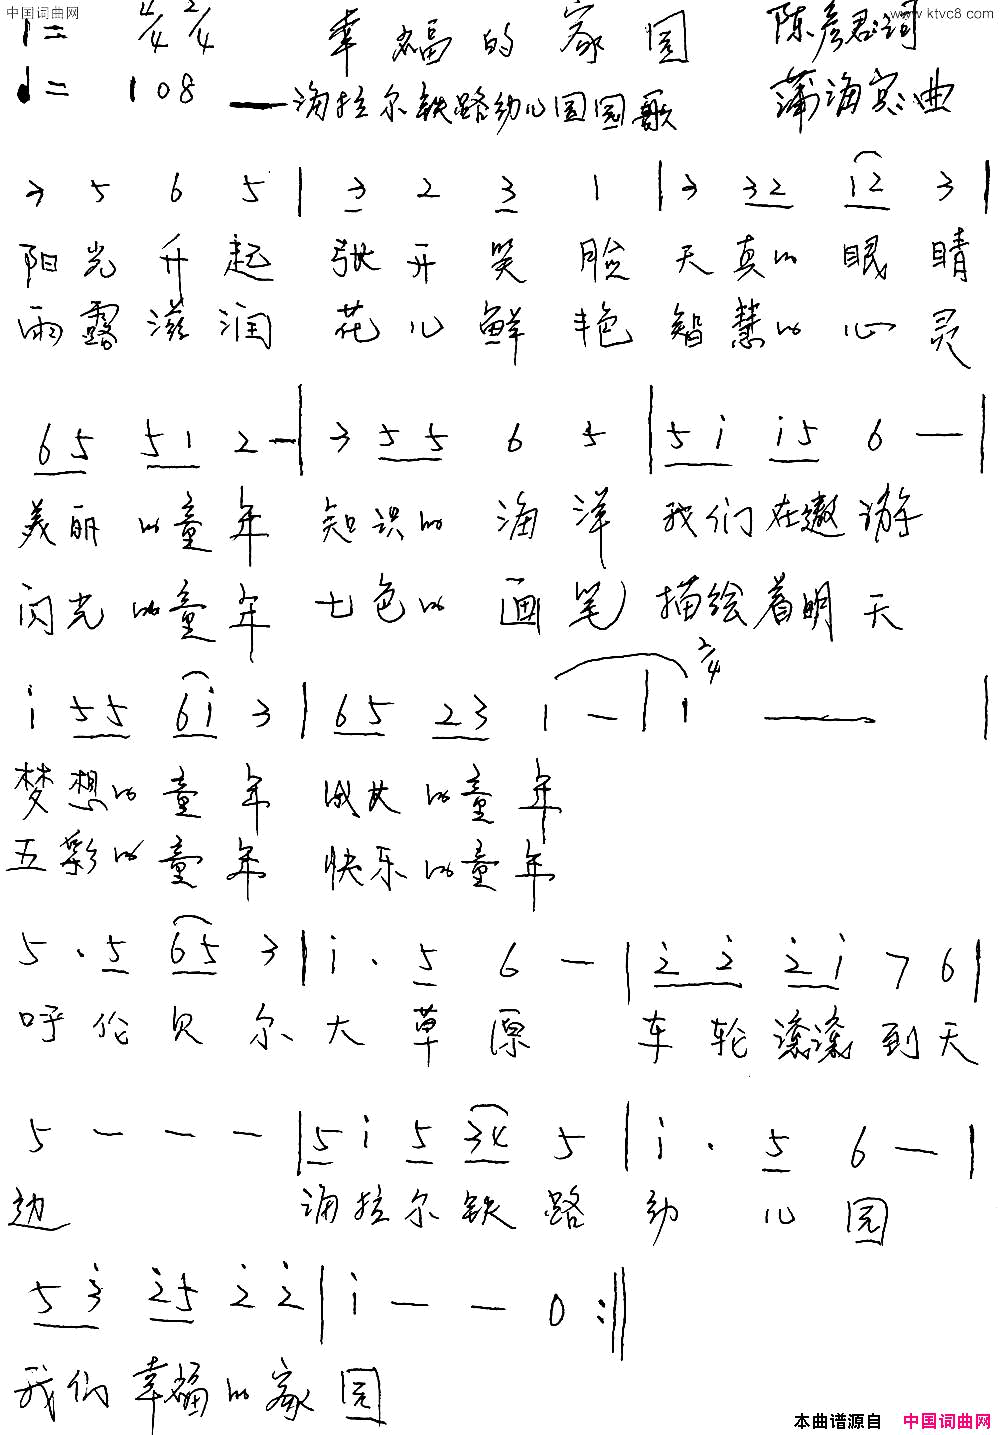 中国词曲网
www.ktvc8.com
1= 4/4 2/4 幸福的家园 陈彦君词
♩= 108 ——海拉尔铁路幼儿园园歌 蒲海宽曲
3 5 6 5 | 3 2 3 1 | 3 32 12 3 |
阳光升起 张开笑脸 天真的眼睛
雨露滋润 花儿鲜艳 智慧的心灵
65 51 2 - | 3 55 6 5 | 5i i5 6 - |
美丽的童年 知识的海洋 我们在遨游
闪光的童年 七色的画笔 描绘着明天
i 55 6i 3 | 65 23 1 - | 2/4 1 - |
梦想的童年 的童年
五彩的童年 快乐的童年
5 · 5 65 3 | i · 5 6 - | 2̇ 2̇ 2̇ i 7 6 |
呼伦贝尔大草原 车轮滚滚到天
5 - - - | 5 i 5 34 5 | i · 5 6 - |
边 海拉尔铁路幼儿园
5 3̇ 2̇5 2̇ 2̇ | i - - 0 :||
我们幸福的家园
本曲谱源自 中国词曲网